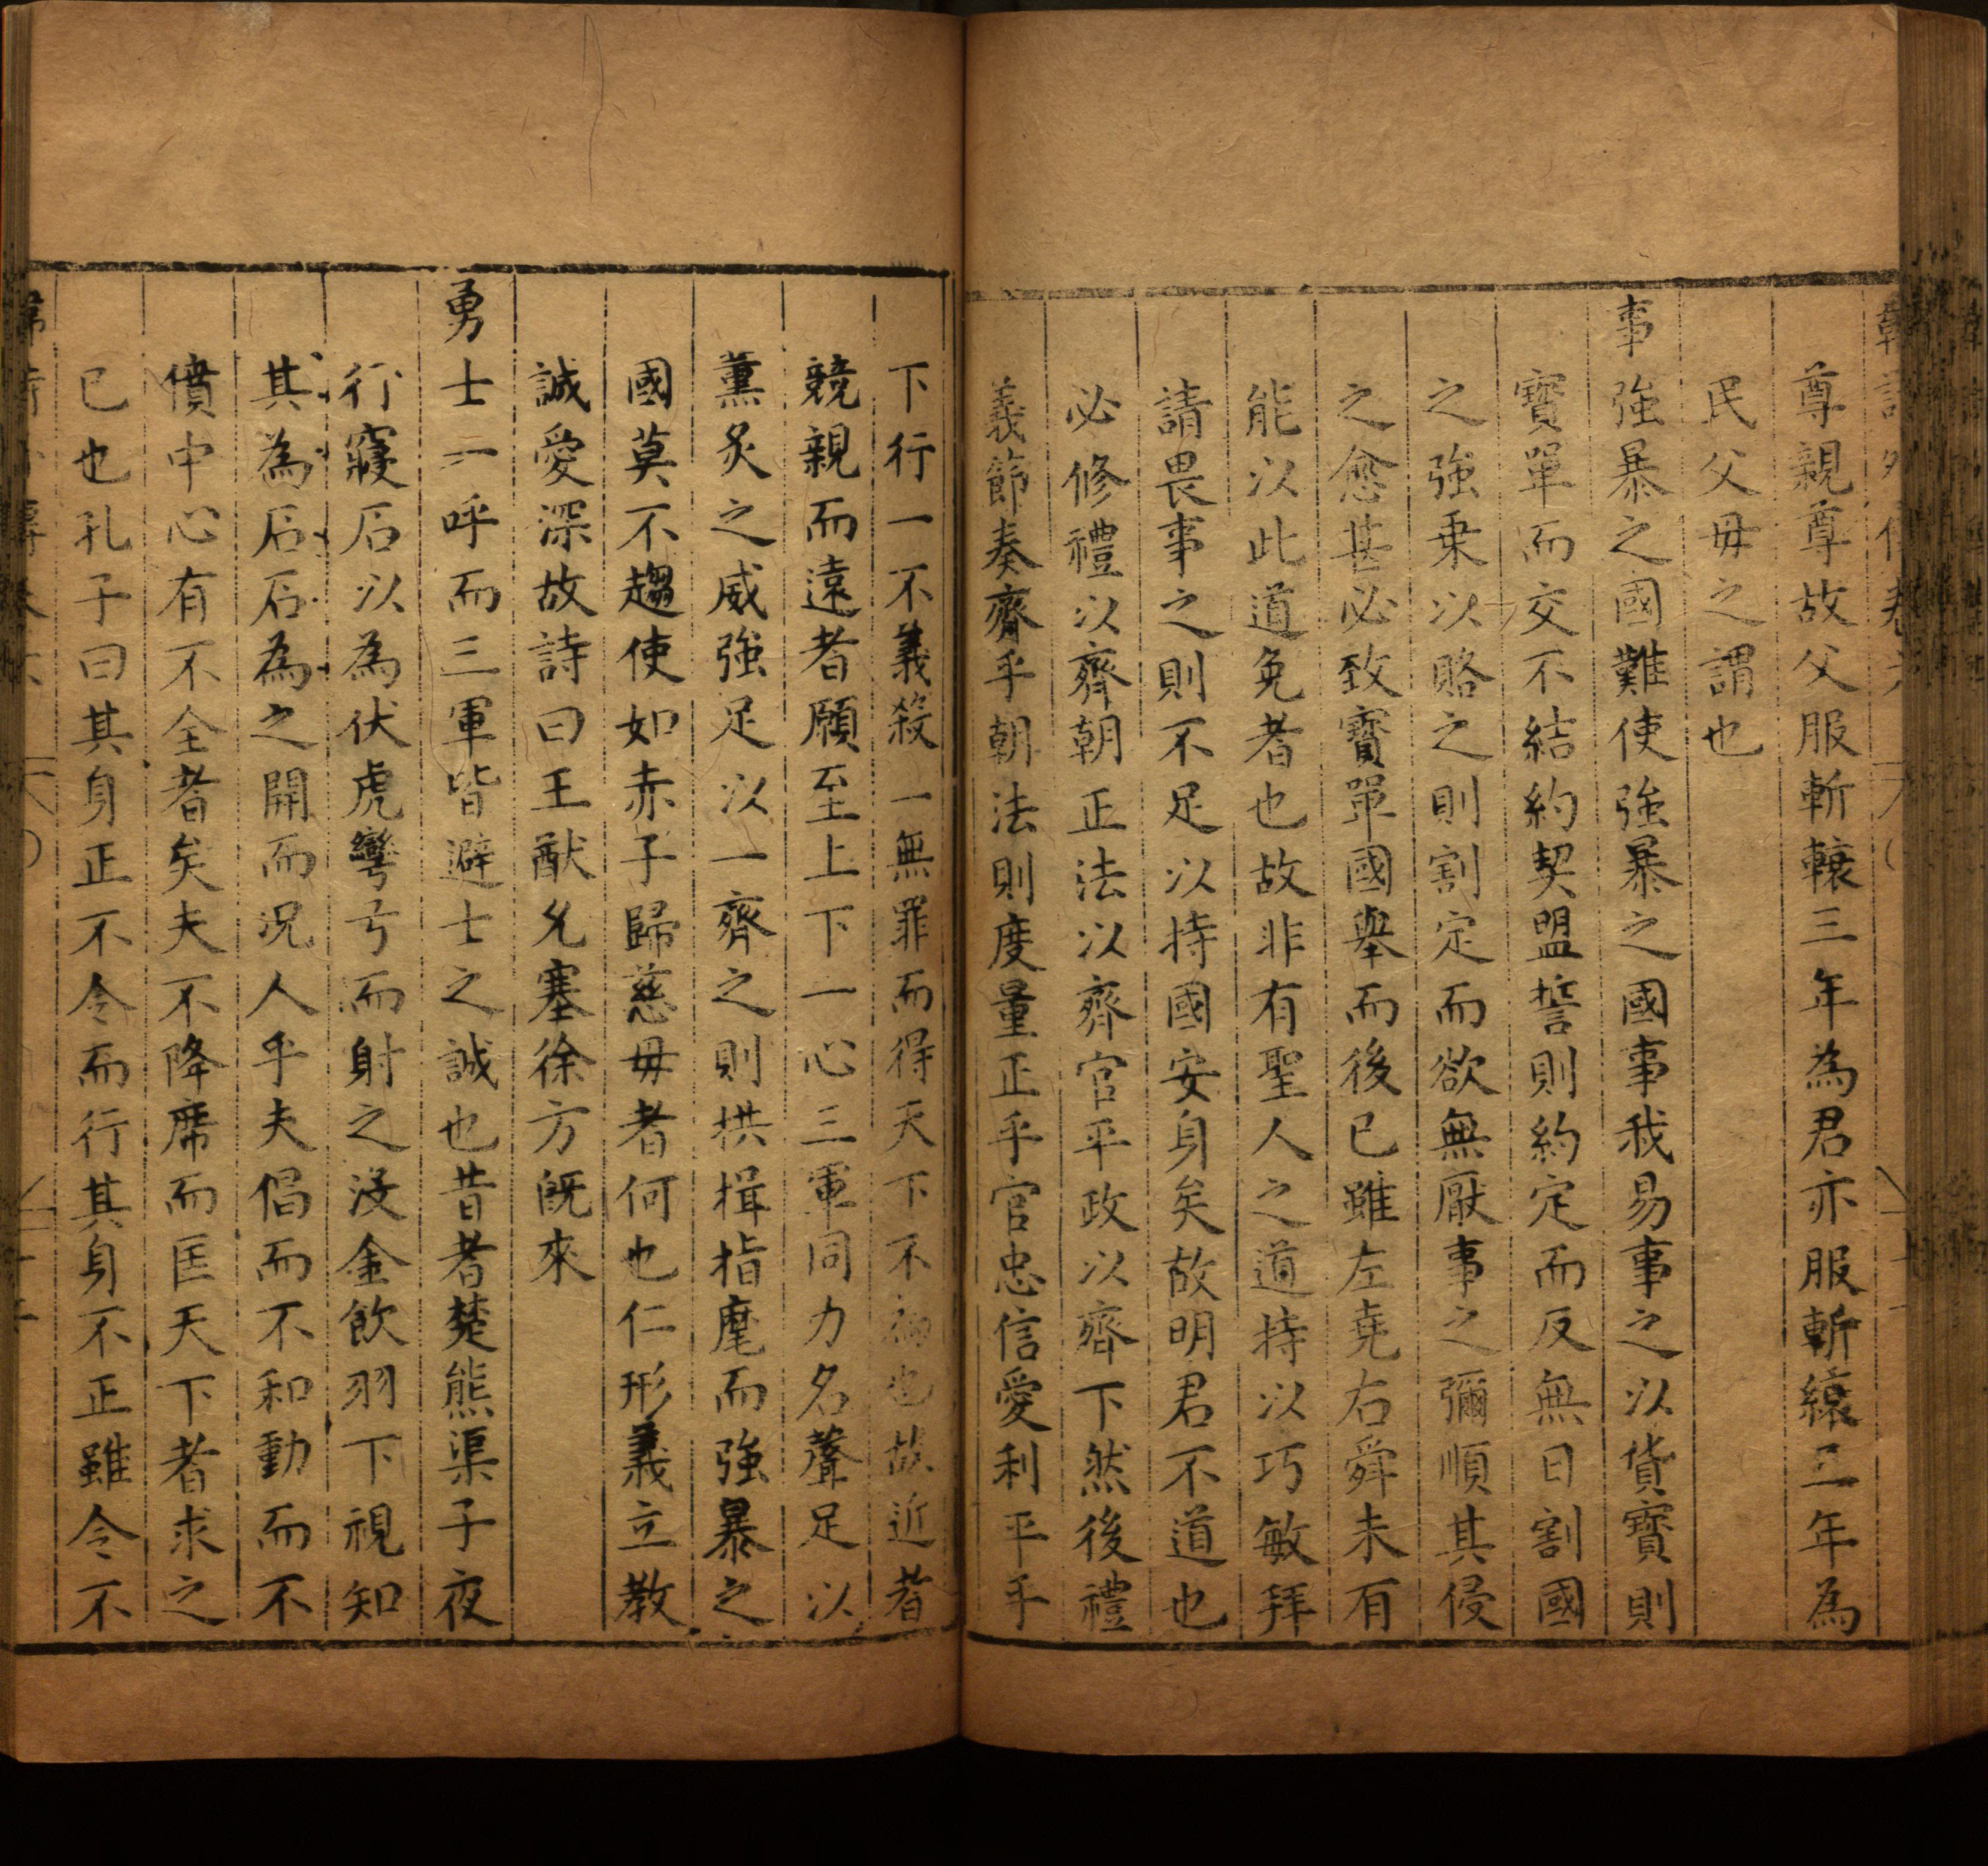 尊親尊故父服斬縗三年為君亦服斬縗三年為
民父母之謂也
事強暴之國難使強暴之國事我易事之以貨寶則
寶單而交不結約契盟誓則約定而反無日割國
之強乗以賂之則割定而欲無厭事之彌順其侵
之愈甚必致寶單國舉而後已雖左堯右舜未有
能以此道免者也故非有聖人之道持以巧敏拜
請畏事之則不足以持國安身矣故明君不道也
必修禮以齊朝正法以齊官平政以齊下然後禮
義節奏齊乎朝法則度量正乎官忠信愛利平乎
下行一不義殺一無罪而得天下不為也故近者
競親而遠者願至上下一心三軍同力名聲足以
薰炙之威強足以一齊之則拱揖指麾而強暴之
國莫不趨使如赤子歸慈母者何也仁形義立教
誠愛深故詩曰王猷允塞徐方旣來
勇士一呼而三軍皆避士之誠也昔者楚熊渠子夜
行寢石以為伏虎彎弓而射之沒金飲羽下視知
其為石石為之開而況人乎夫倡而不和動而不
僨中心有不全者矣夫不降席而匡天下者求之
已也孔子曰其身正不令而行其身不正雖令不